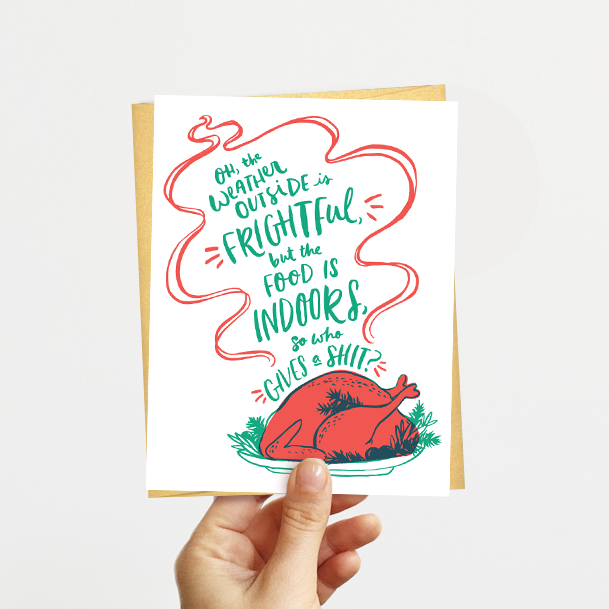 OH, the
WEATHER
OUTSIDE is
FRIGHTFuL,
but the
FOOD IS
INDOORS,
so who
GIVES a SHIT?